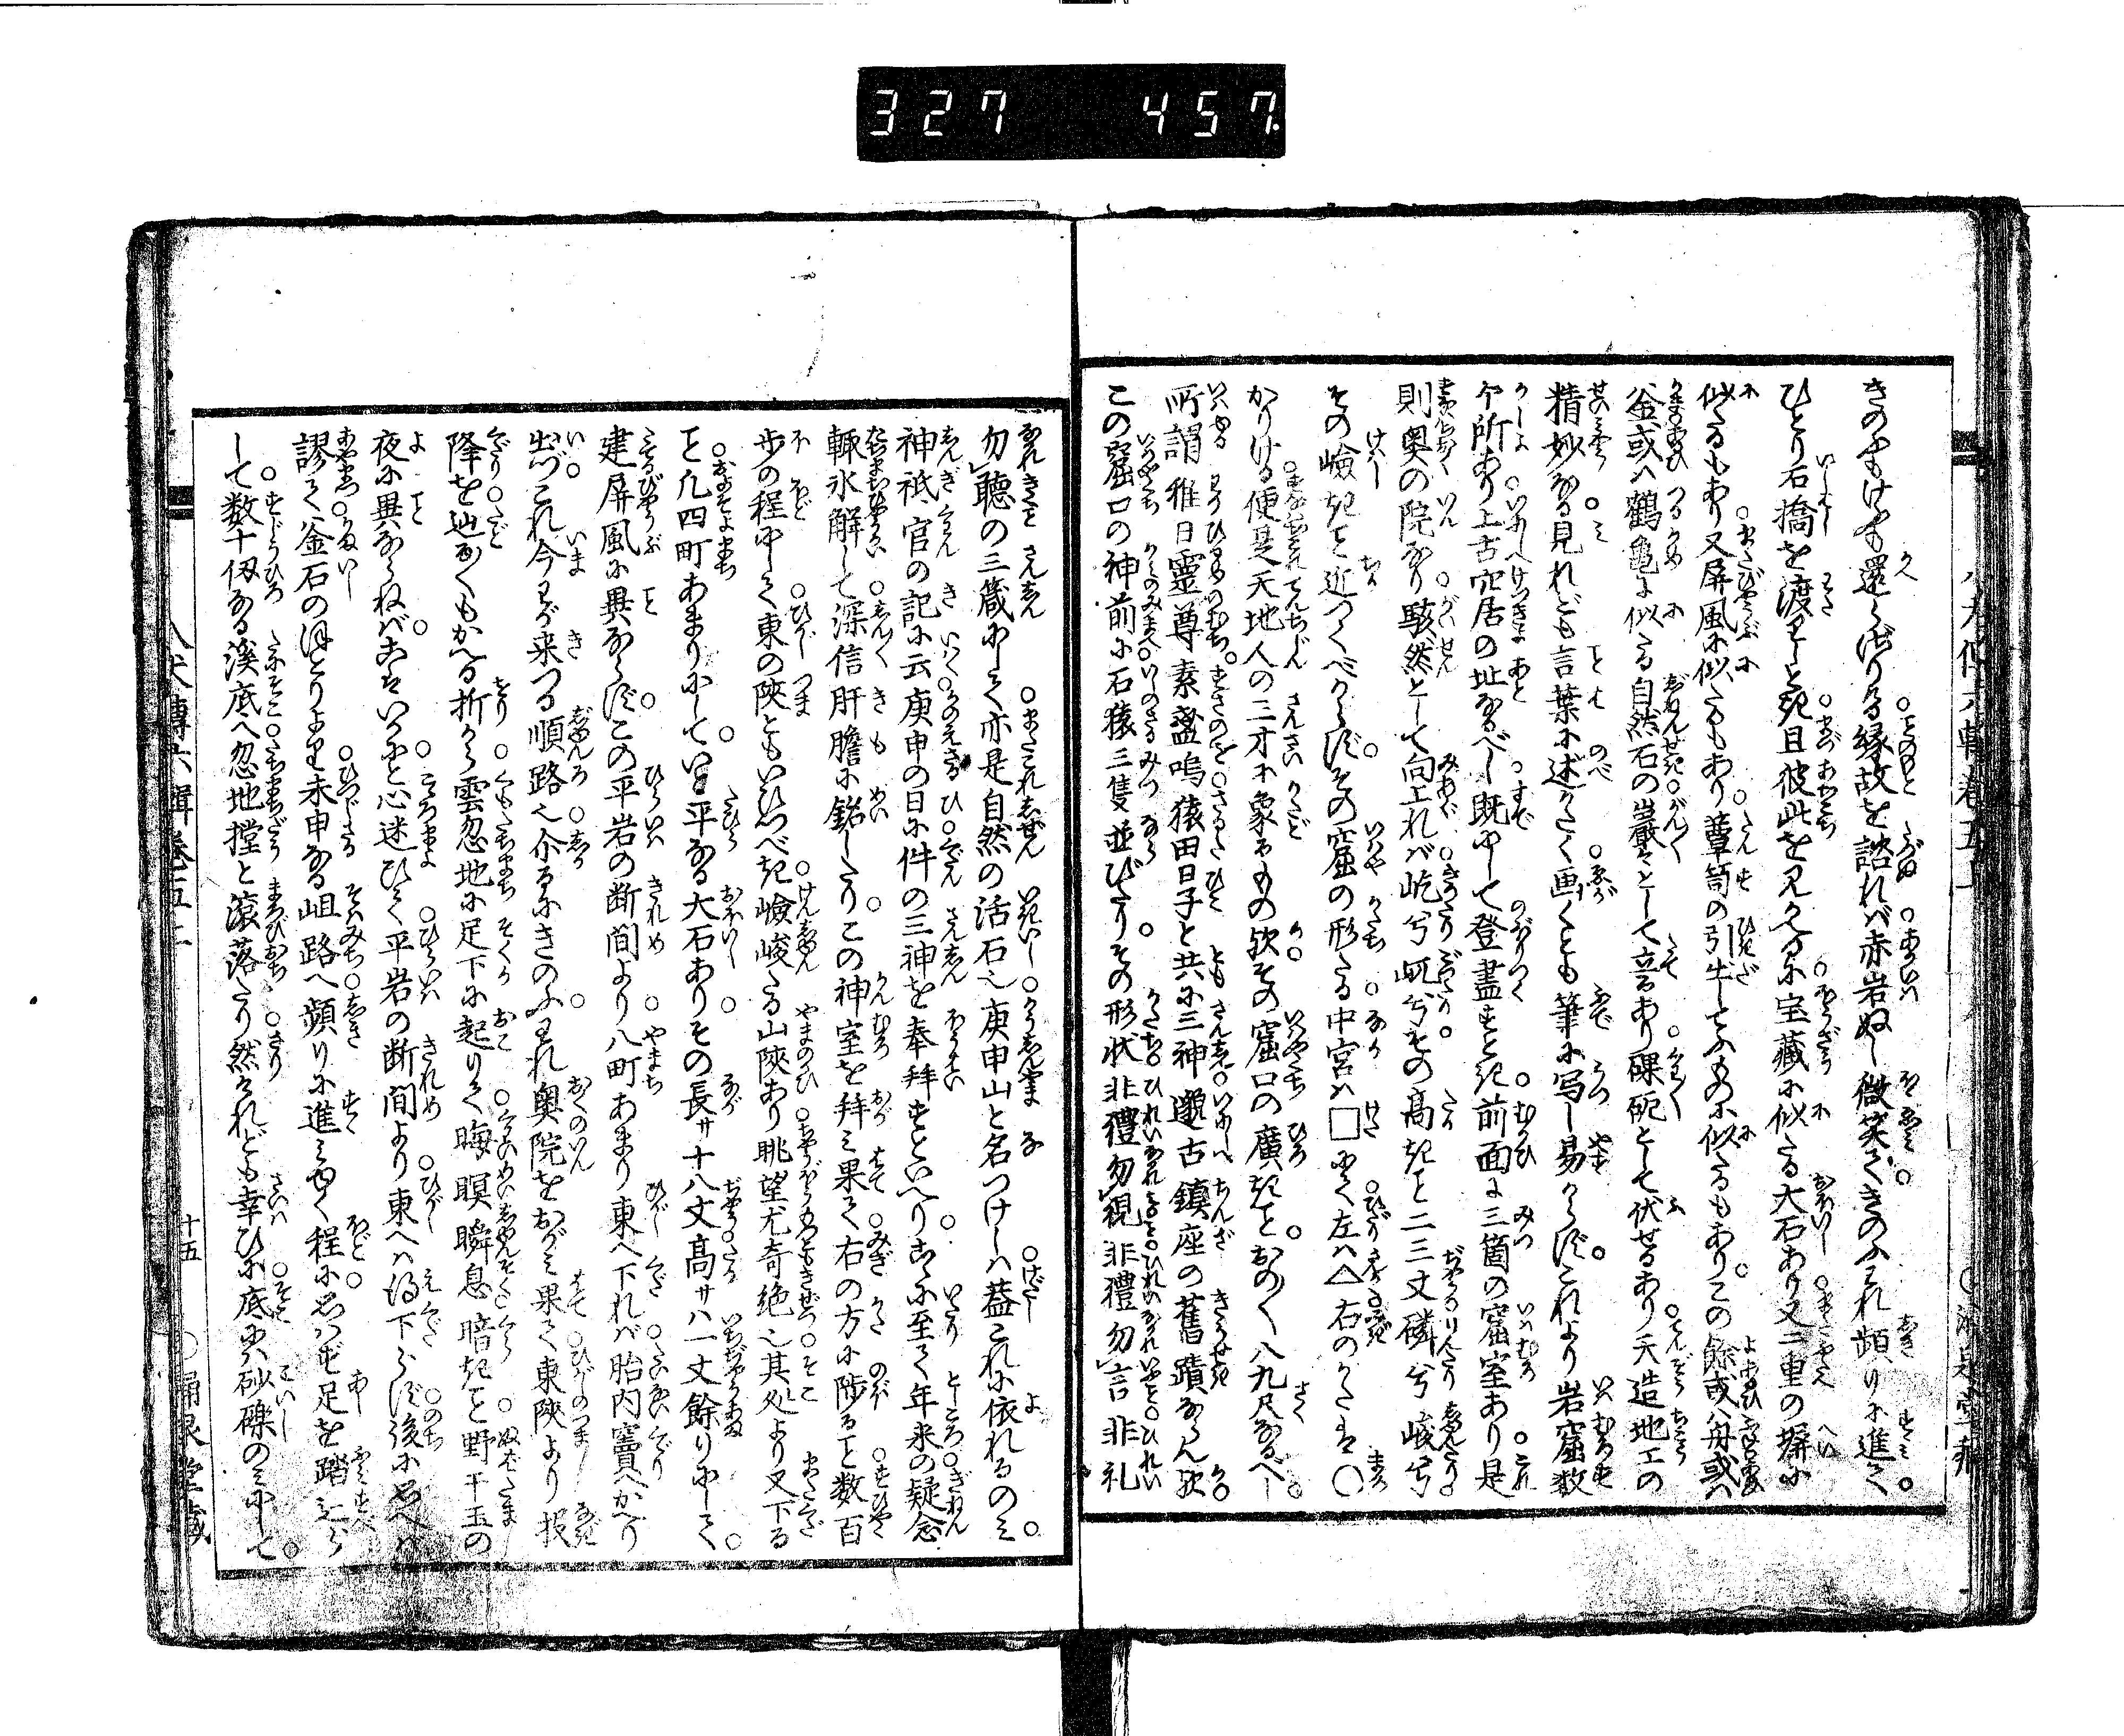 327 457.
きのふもけふも還らざりける縁故を諮れバ赤岩ぬし微笑てきのふわれ頻りに進て
ひとり石橋を渡しし折且彼此を見かへるに宝蔵に似たる大石あり又二重の塀に
似たるもあり又屏風に似たるもあり蕈笥の引牛てふものに似たるもありこの餘或ハ舟或ハ
釜或ハ鶴亀に似たる自然石の巌々として立るあり磥砢として伏せるあり天造地工の
精妙なる見れども言葉に述がたく画くとも筆に写し易からずこれより岩窟数
个所あり上古穴居の址なるべし既にして登盡すとき前面に三箇の窟室あり是
則奥の院なり駭然として向上れバ屹兮𡵆兮その高きこと二三丈磷兮峻兮
その嶮きこと近つくべからずその窟の形たる中宮ハ□にて左ハ△右のかたは○
かりける便是天地人の三才に象るもの歟その窟口の廣きことおの〱八九尺なるべし
所謂稚日靈尊素盞嗚猿田日子と共に三神邈古鎮座の舊蹟ならん歟
この窟口の神前に石猿三隻並びたりその形状非禮勿視非禮勿言非礼
勿聴の三箴にして亦是自然の活石也庚申山と名つけしハ葢これに依れるのミ
神祇官の記に云庚申の日に件の三神を奉拜すといへりこゝに至て年来の疑念
輙氷解して深信肝膽に銘したりこの神室を拜ミ果て右の方に陟ること数百
歩の程にして東の陝ともいひつべき嶮峻たる山陝あり眺望尤奇絶也其処より又下る
こと凡四町あまりにしていと平なる大石ありその長サ十八丈高サハ一丈餘りにして
建屏風に異ならずこの平岩の断間より八町あまり東へ下れバ胎内竇へかへり
出づこれ今わが来つる順路也介るにきのふわれ奥院をおがミ果て東陝より投
降を辿るくもかへる折から雲忽地に足下に起りて晦瞑瞬息暗きこと野干玉の
夜に異ならねバこはいかにと心迷ひて平岩の断間より東へハ得下らず後に思へハ
謬て釜石のほとりより未申なる岨路へ頻りに進ミゆく程に思はず足を踏辷らし
して数十仭なる溪底へ忽地撲と滾落たり然されども幸ひに底ハ砂礫のミにして
八犬傳六輯巻五上
十五
○涌泉堂藏